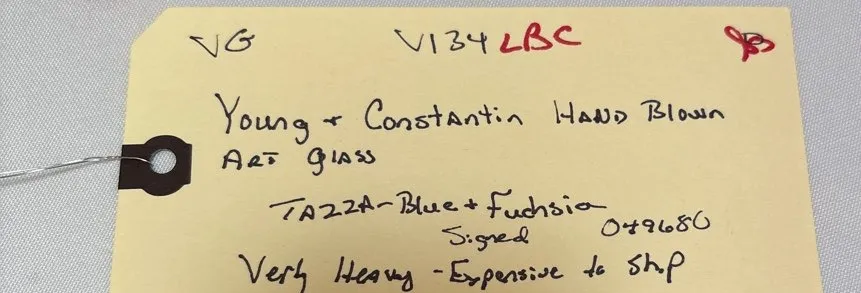 VG V134 LBC
Young + Constantin Hand Blown
Art glass
TAZZA - Blue + Fuchsia
Signed 049680
Very Heavy - Expensive to Ship